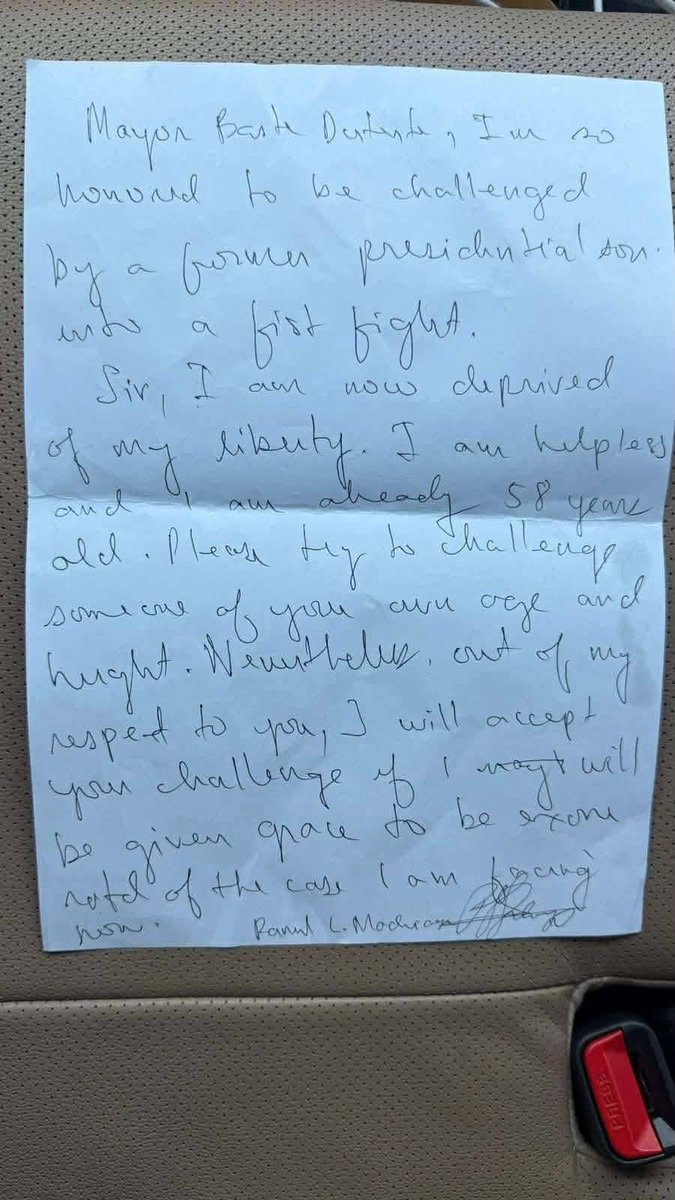 Mayor Baste Duterte, I'm so
honored to be challenged
by a former presidential son
into a fist fight.
Sir, I am now deprived
of my liberty. I am helpless
and I am already 58 years
old. Please try to challenge
someone of your own age and
height. Nevertheless, out of my
respect to you, I will accept
your challenge if I will
be given grace to be exone
rated of the case I am facing
now. Ramil L. Madriaga
PRESS